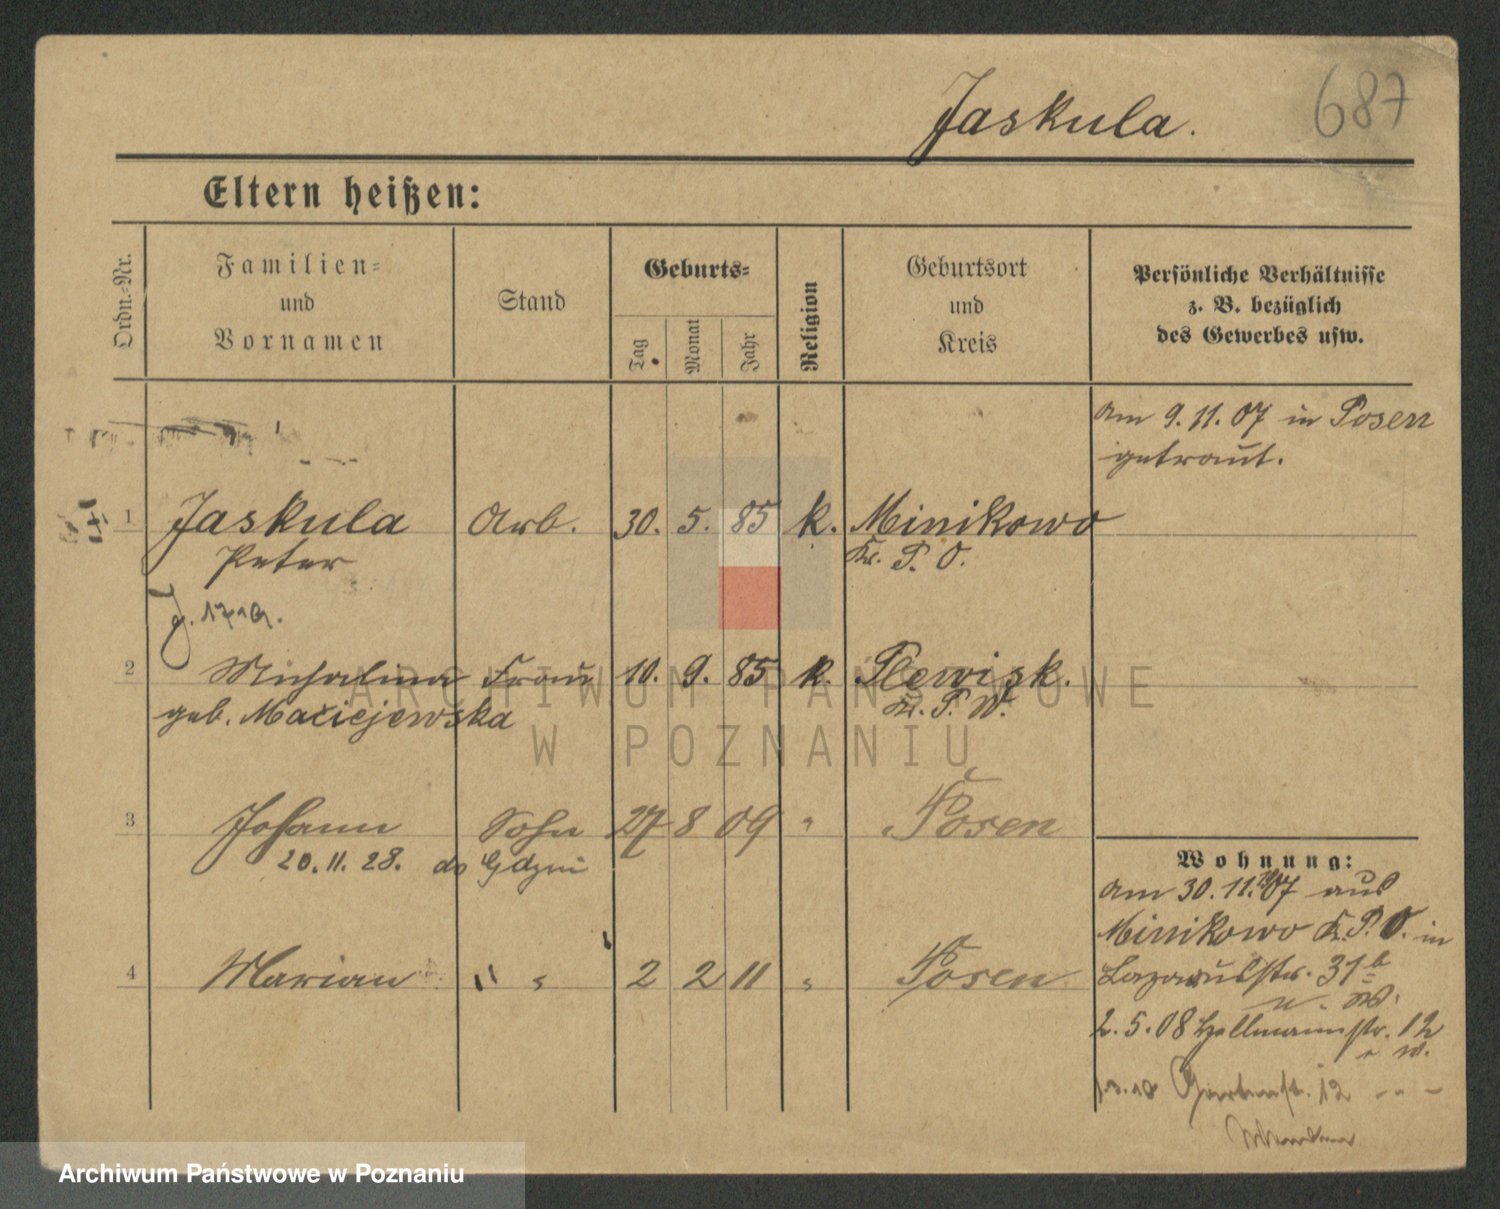 Jaskula.
687
Eltern heißen:
Ordn.-Nr.
Familien-
und
Vornamen
Stand
Geburts-
Tag
Monat
Jahr
Religion
Geburtsort
und
Kreis
Persönliche Verhältnisse
z. B. bezüglich
des Gewerbes usw.
am 9.11.07 in Posen
getraut.
1 Jaskula Arb. 30. 5. 85 k. Minikowo
Peter Kr. P. O.
2 Michalina Frau 10. 9. 85 k. Plewisk.
geb. Maciejewska Kr. P. W.
3 Johann Sohn 27 8 09 " Posen
20.11.28. do Gdyni
4 Marian " " 2 2 11 " Posen
Wohnung:
am 30.11.07 aus
Minikowo Kr. P. O. in
Lazarusstr. 31b
2.5.08 Hellmannstr. 12
Gartenst. 12
ARCHIWUM PAŃSTWOWE
W POZNANIU
Archiwum Państwowe w Poznaniu